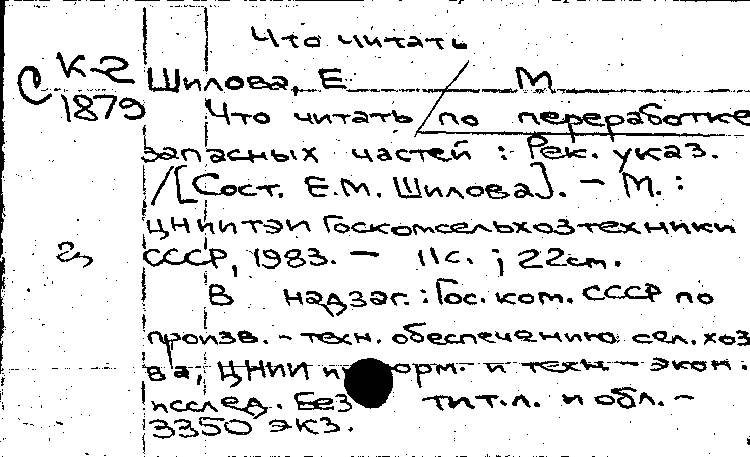 Что читать
С К-2 Шилова, Е М
1879 Что читать / по переработке
запасных частей : Рек. указ.
/[Сост. Е.М. Шилова]. – М. :
ЦНИИТЭИ Госкомсельхозтехники
СССР, 1983. – 11с. ; 22см.
В надзаг. : Гос. ком. СССР по
произв. - техн. обеспечению сел. хоз
ва, ЦНИИ информ. и техн – экон.
исслед. Без тит.л. и обл. –
3350 экз.